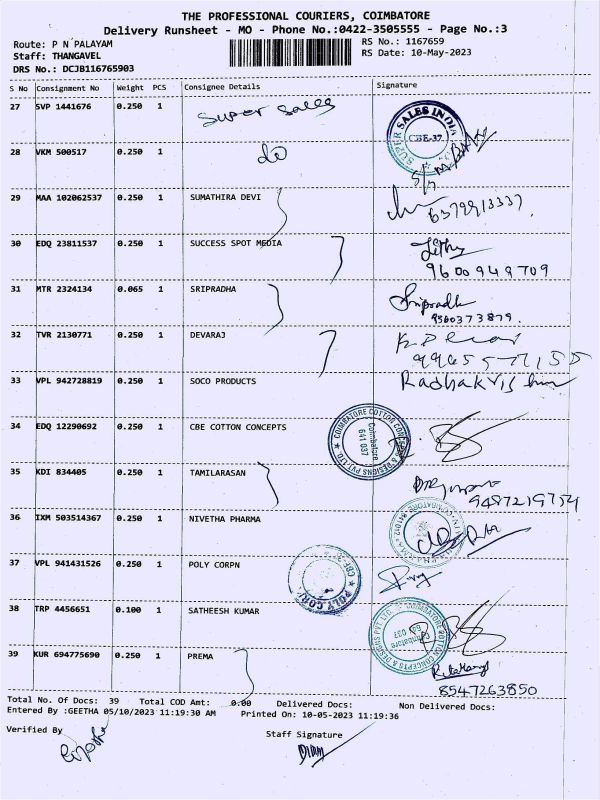 THE PROFESSIONAL COURIERS, COIMBATORE
Delivery Runsheet - MO - Phone No.:0422-3505555 - Page No.:3
Route: P N PALAYAM RS No.: 1167659
Staff: THANGAVEL RS Date: 10-May-2023
DRS No.: DCJB116765903
S No Consignment No Weight PCS Consignee Details Signature
27 SVP 1441676 0.250 1 Super Sales
SUPER SALES INDIA
CBE-37
28 VKM 500517 0.250 1 do
29 MAA 102062537 0.250 1 SUMATHIRA DEVI
6379913337
30 EDQ 23811537 0.250 1 SUCCESS SPOT MEDIA
9600949709
31 MTR 2324134 0.065 1 SRIPRADHA Sripradh
9500373879
32 TVR 2130771 0.250 1 DEVARAJ
33 VPL 942728819 0.250 1 SOCO PRODUCTS Radhakrishnan
34 EDQ 12290692 0.250 1 CBE COTTON CONCEPTS
COIMBATORE COTTON CONCEPTS & DESIGNS PVT LTD.
Coimbatore
641 037
35 KDI 834405 0.250 1 TAMILARASAN
36 IXM 503514367 0.250 1 NIVETHA PHARMA
37 VPL 941431526 0.250 1 POLY CORPN
38 TRP 4456651 0.100 1 SATHEESH KUMAR
Coimbatore
641 037
39 KUR 694775690 0.250 1 PREMA
8547263850
Total No. Of Docs: 39 Total COD Amt: 0.00 Delivered Docs: Non Delivered Docs:
Entered By :GEETHA 05/10/2023 11:19:30 AM Printed On: 10-05-2023 11:19:36
Verified By Staff Signature